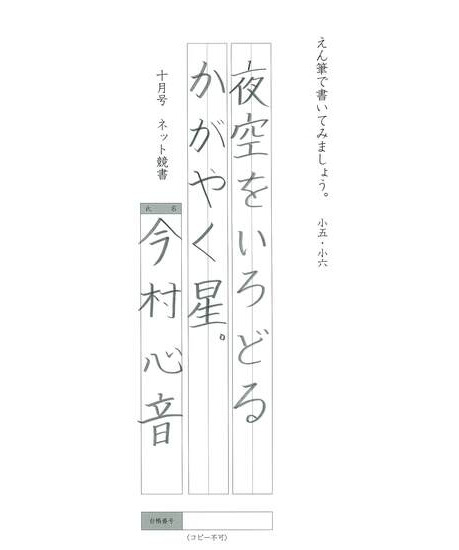 えん筆で書いてみましょう。 小五・小六
夜空をいろどる
かがやく星。
十月号 ネット競書
氏名
今村心音
台帳番号
(コピー不可)